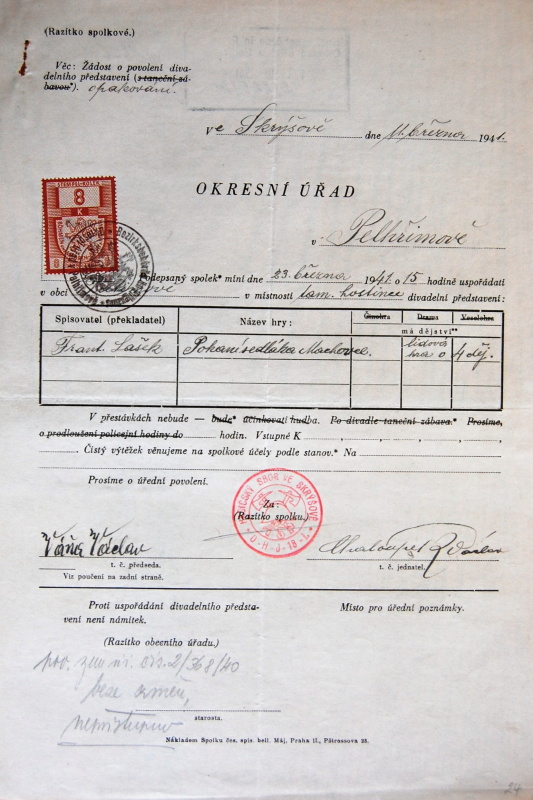 (Razítko spolkové.)
Věc: Žádost o povolení diva-
delního představení (s taneční zá-
bavou*). opakování.
ve Skrýšově dne 11. března 1941.
STEMPEL-KOLEK
8
K
OKRESNÍ ÚŘAD
v Pelhřimově
Podepsaný spolek* míní dne 23. března 1941 o 15 hodině uspořádati
v obci v místnosti tam. hostinec divadelní představení:
Spisovatel (překladatel) Název hry: Činohra Drama Veselohra
má dějství**
Frant. Lašek Pokání sedláka Machovce. lidová
hra o 4 děj.
V přestávkách nebude — bude* účinkovati hudba. Po divadle taneční zábava.* Prosíme,
o prodloužení policejní hodiny do hodin. Vstupné K
Čistý výtěžek věnujeme na spolkové účely podle stanov.* Na
Prosíme o úřední povolení.
HASIČSKÝ SBOR VE SKRÝŠOVĚ
O.H.J. 18-I.
Za:
(Razítko spolku.)
Váňa Václav
t. č. předseda. t. č. jednatel.
Viz poučení na zadní straně.
Proti uspořádání divadelního předsta-
vení není námitek.
Místo pro úřední poznámky.
(Razítko obecního úřadu.)
pov. zem. úř. čís. 2/368/40
beze změn,
nepřístupno
starosta.
Nákladem Spolku čes. spis. bell. Máj, Praha II., Pštrossova 25.
24